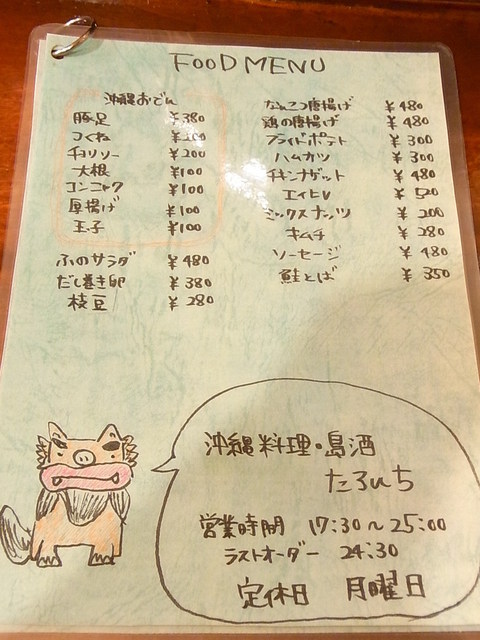 FOOD MENU
沖縄おでん
豚足 ¥380
つくね ¥200
チョリソー ¥200
大根 ¥100
コンニャク ¥100
厚揚げ ¥100
玉子 ¥100
ふのサラダ ¥480
だし巻き卵 ¥380
枝豆 ¥280
なんこつ唐揚げ ¥480
鶏の唐揚げ ¥480
フライドポテト ¥300
ハムカツ ¥300
チキンナゲット ¥480
エイヒレ ¥520
ミックスナッツ ¥200
キムチ ¥280
ソーセージ ¥480
鮭とば ¥350
沖縄料理・島酒
たるいち
営業時間 17:30～25:00
ラストオーダー 24:30
定休日 月曜日